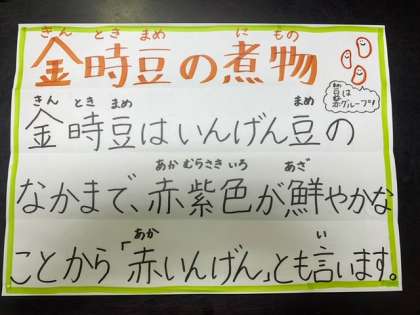 きん とき まめ に もの
金時豆の煮物
きん とき まめ まめ
金時豆はいんげん豆の
あか むらさき いろ あざ
なかまで、赤紫色が鮮やかな
あか い
ことから「赤いんげん」とも言います。